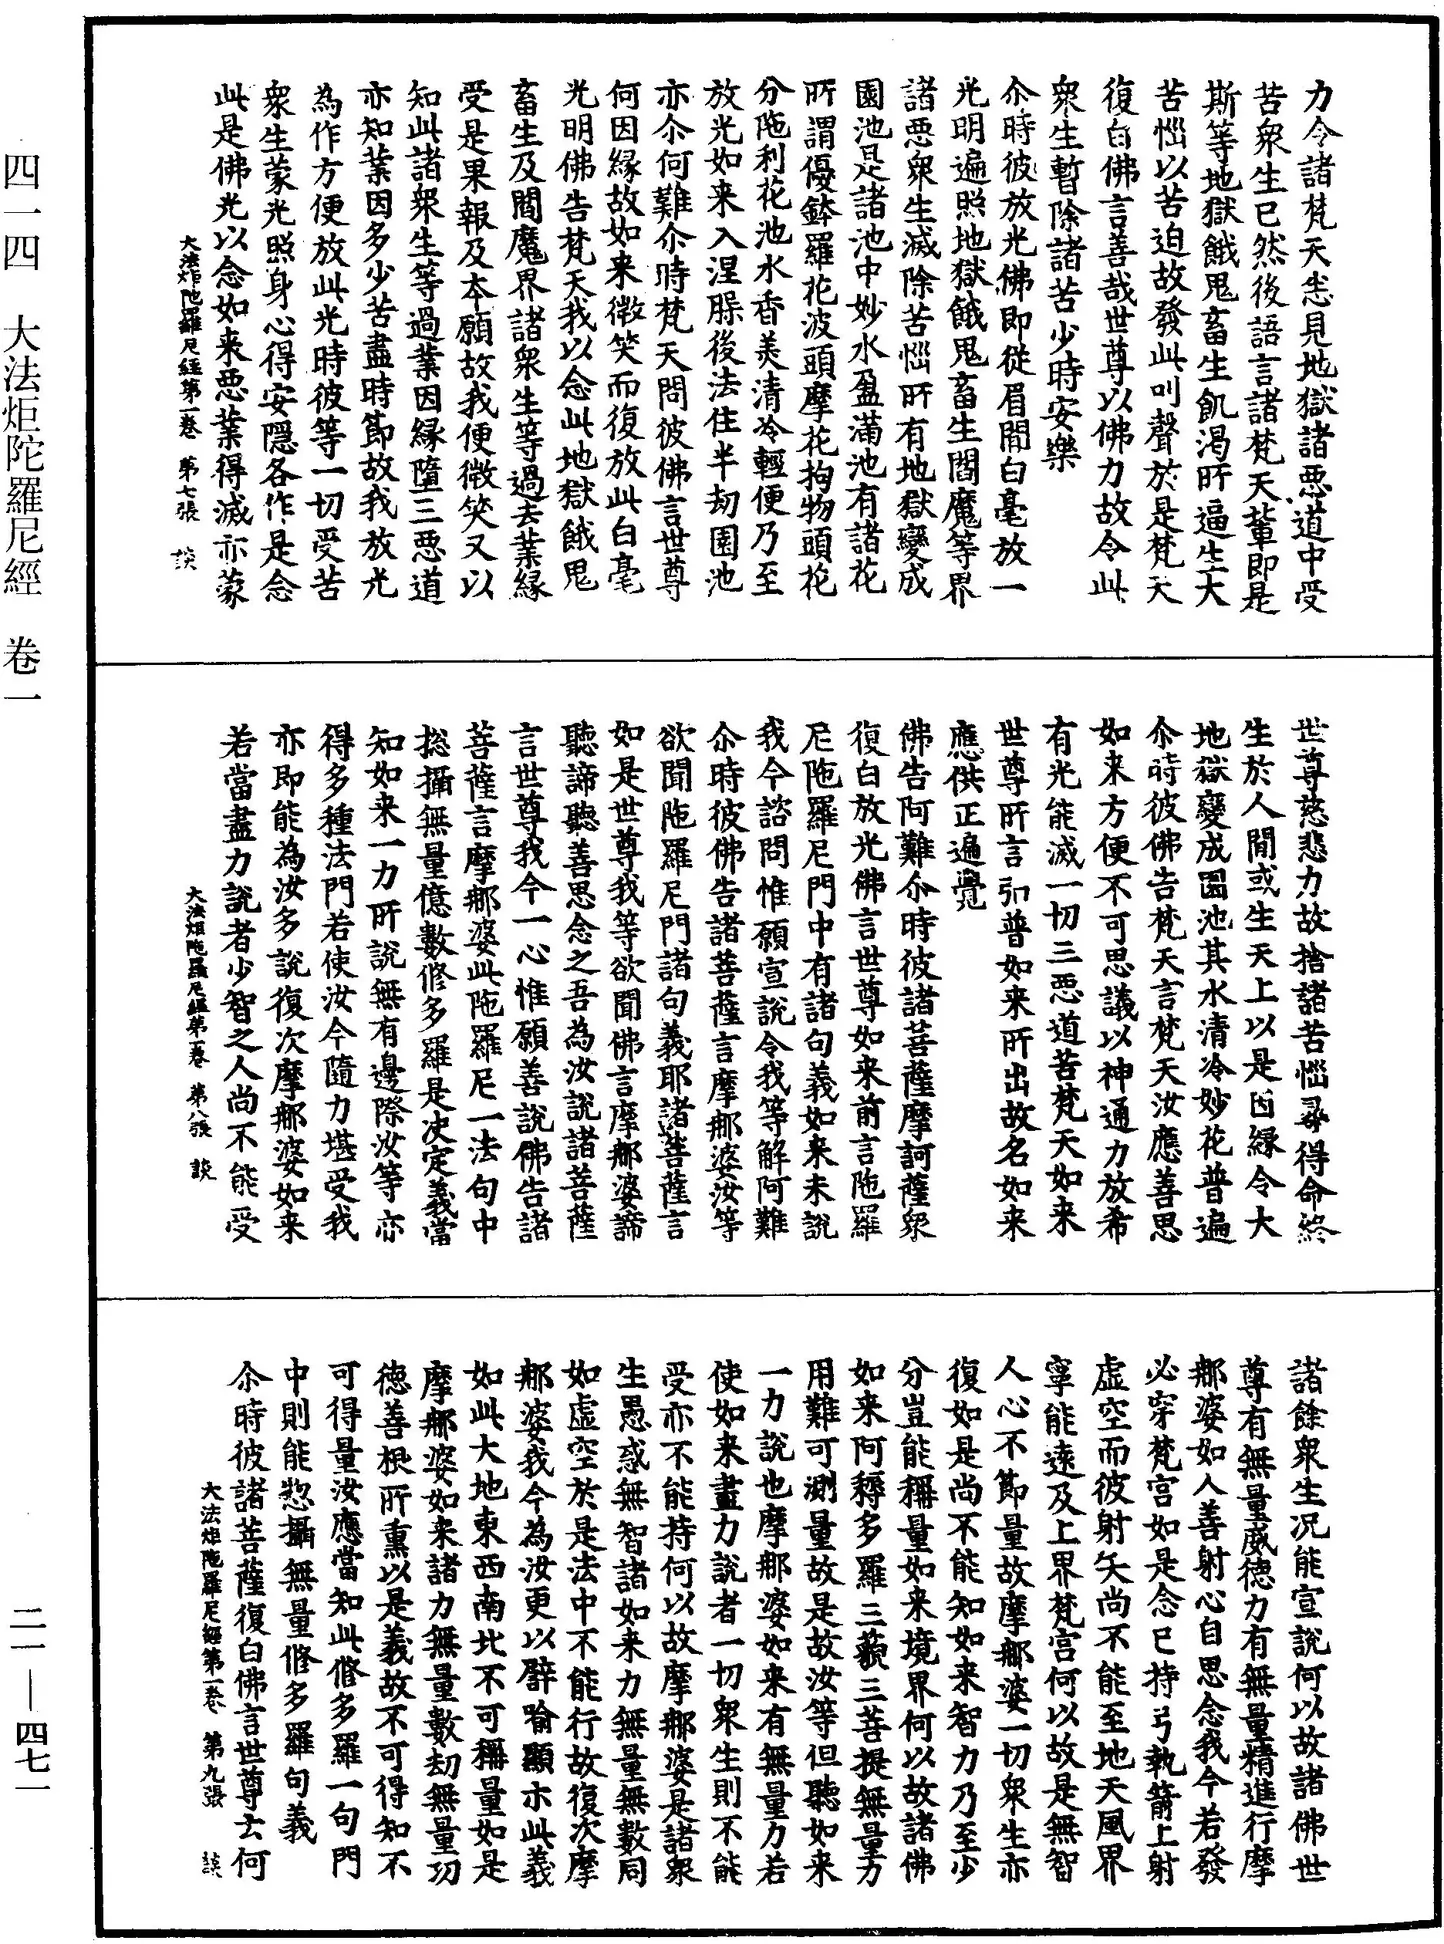 四一四　大法炬陀羅尼經　卷一
力令諸梵天悉見地獄諸惡道中受
苦衆生已然後語言諸梵天輩即是
斯等地獄餓鬼畜生飢渴所逼生大
苦惱以苦迫故發此叫聲於是梵天
復白佛言善哉世尊以佛力故令此
衆生暫除諸苦少時安樂
尒時彼放光佛即從眉間白毫放一
光明遍照地獄餓鬼畜生閻魔等界
諸惡衆生滅除苦惱所有地獄變成
園池是諸池中妙水盈滿池有諸花
所謂優鉢羅花波頭摩花拘物頭花
分陁利花池水香美清冷輕便乃至
放光如来入涅槃後法住半劫園池
亦尒何難尒時梵天問彼佛言世尊
何因緣故如来微笑而復放此白毫
光明佛告梵天我以念此地獄餓鬼
畜生及閻魔界諸衆生等過去業緣
受是果報及本願故我便微笑又以
知此諸衆生等過業因緣墮三惡道
亦知業因多少苦盡時節故我放光
為作方便放此光時彼等一切受苦
衆生蒙光照身心得安隱各作是念
此是佛光以念如来惡業得滅亦蒙
大法炬陁羅尼經第一卷　第七張　談
世尊慈悲力故捨諸苦惱尋得命終
生於人間或生天上以是因緣令大
地獄變成園池其水清冷妙花普遍
尒時彼佛告梵天言梵天汝應善思
如来方便不可思議以神通力放希
有光能滅一切三惡道苦梵天如来
世尊所言引普如来所出故名如来
應供正遍覺
佛告阿難尒時彼諸菩薩摩訶薩衆
復白放光佛言世尊如来前言陁羅
尼陁羅尼門中有諸句義如来未說
我今諮問惟願宣說令我等解阿難
尒時彼佛告諸菩薩言摩那婆汝等
欲聞陁羅尼門諸句義耶諸菩薩言
如是世尊我等欲聞佛言摩那婆諦
聽諦聽善思念之吾為汝說諸菩薩
言世尊我今一心惟願善說佛告諸
菩薩言摩那婆此陁羅尼一法句中
揔攝無量億數修多羅是决定義當
知如来一力所說無有邊際汝等亦
得多種法門若使汝今隨力堪受我
亦即能為汝多說復次摩那婆如来
若當盡力說者少智之人尚不能受
大法炬陁羅尼經第一卷　第八張　談
諸餘衆生况能宣說何以故諸佛世
尊有無量威德力有無量精進行摩
那婆如人善射心自思念我今若發
必穿梵宮如是念已持弓執箭上射
虛空而彼射矢尚不能至地天風界
寧能遠及上界梵宮何以故是無智
人心不節量故摩那婆一切衆生亦
復如是尚不能知如来智力乃至少
分豈能稱量如来境界何以故諸佛
如来阿耨多羅三藐三菩提無量力
用難可測量故是故汝等但聽如来
一力說也摩那婆如来有無量力若
使如来盡力說者一切衆生則不能
受亦不能持何以故摩那婆是諸衆
生愚惑無智諸如来力無量無數同
如虛空於是法中不能行故復次摩
那婆我今為汝更以譬喻顯示此義
如此大地東西南北不可稱量如是
摩那婆如来諸力無量數劫無量功
德善根所熏以是義故不可得知不
可得量汝應當知此修多羅一句門
中則能揔攝無量修多羅句義
尒時彼諸菩薩復白佛言世尊云何
大法炬陁羅尼經第一卷　第九張　談
二一—四七一